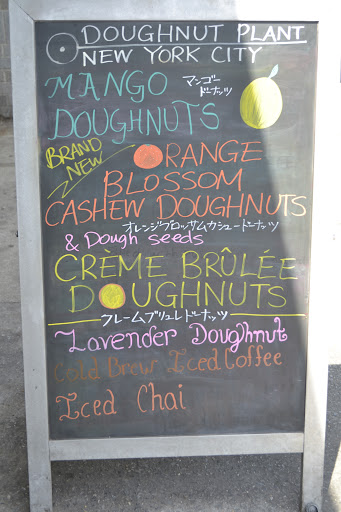 DOUGHNUT PLANT
NEW YORK CITY
MANGO マンゴー
ドーナッツ
DOUGHNUTS
BRAND
NEW
ORANGE
BLOSSOM
CASHEW DOUGHNUTS
オレンジブロッサムカシュードーナッツ
& Dough seeds
CRÈME BRÛLÉE
DOUGHNUTS
クレームブリュレドーナッツ
Lavender Doughnut
Cold Brew Iced Coffee
Iced Chai